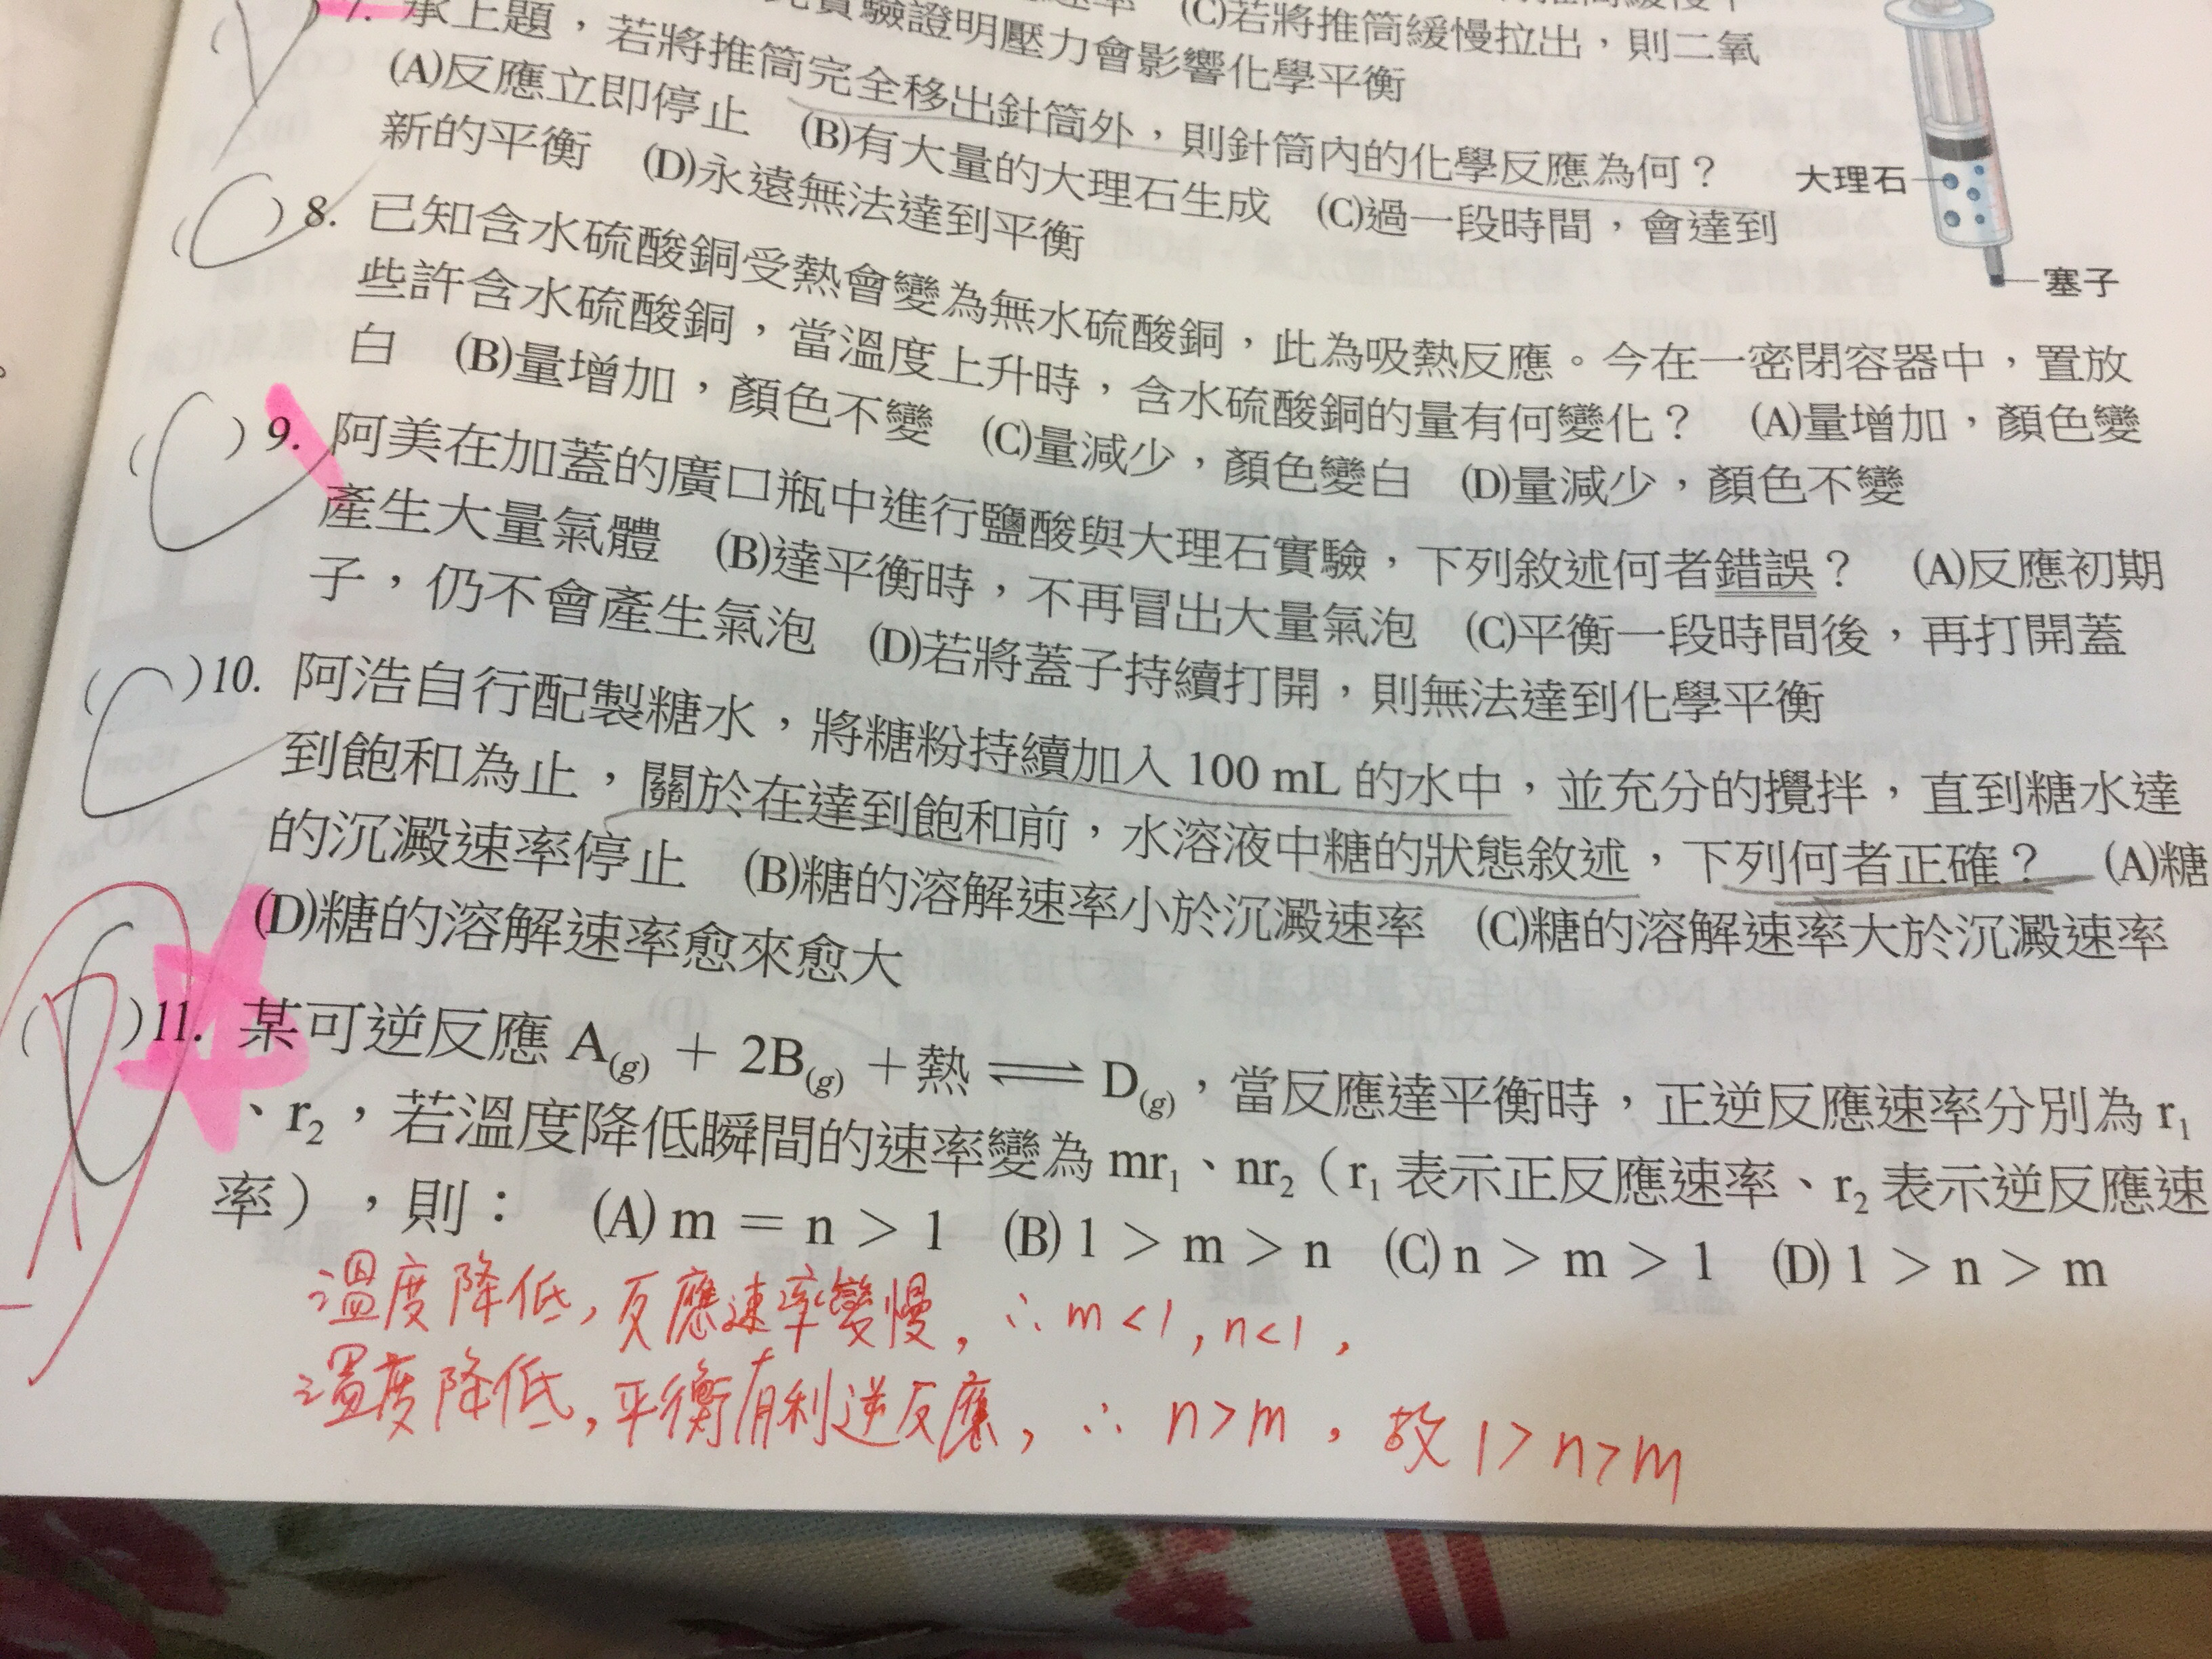 此實驗證明壓力會影響化學平衡 (C)若將推筒緩慢拉出，則二氧
7. 承上題，若將推筒完全移出針筒外，則針筒內的化學反應為何？
(A)反應立即停止 (B)有大量的大理石生成 (C)過一段時間，會達到
新的平衡 (D)永遠無法達到平衡
大理石
塞子
(C) 8. 已知含水硫酸銅受熱會變為無水硫酸銅，此為吸熱反應。今在一密閉容器中，置放
些許含水硫酸銅，當溫度上升時，含水硫酸銅的量有何變化？ (A)量增加，顏色變
白 (B)量增加，顏色不變 (C)量減少，顏色變白 (D)量減少，顏色不變
(C) 9. 阿美在加蓋的廣口瓶中進行鹽酸與大理石實驗，下列敘述何者錯誤？ (A)反應初期
產生大量氣體 (B)達平衡時，不再冒出大量氣泡 (C)平衡一段時間後，再打開蓋
子，仍不會產生氣泡 (D)若將蓋子持續打開，則無法達到化學平衡
(C) 10. 阿浩自行配製糖水，將糖粉持續加入 100 mL 的水中，並充分的攪拌，直到糖水達
到飽和為止，關於在達到飽和前，水溶液中糖的狀態敘述，下列何者正確？ (A)糖
的沉澱速率停止 (B)糖的溶解速率小於沉澱速率 (C)糖的溶解速率大於沉澱速率
(D)糖的溶解速率愈來愈大
( ) 11. 某可逆反應 A(g) + 2B(g) + 熱 ⇌ D(g)，當反應達平衡時，正逆反應速率分別為 r₁
、r₂，若溫度降低瞬間的速率變為 mr₁、nr₂（r₁ 表示正反應速率、r₂ 表示逆反應速
率），則： (A) m = n > 1 (B) 1 > m > n (C) n > m > 1 (D) 1 > n > m
溫度降低，反應速率變慢，∴ m<1, n<1，
溫度降低，平衡有利逆反應，∴ n>m，故 1>n>m